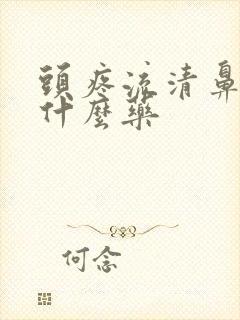 頭疼流清鼻
什麼藥
何念